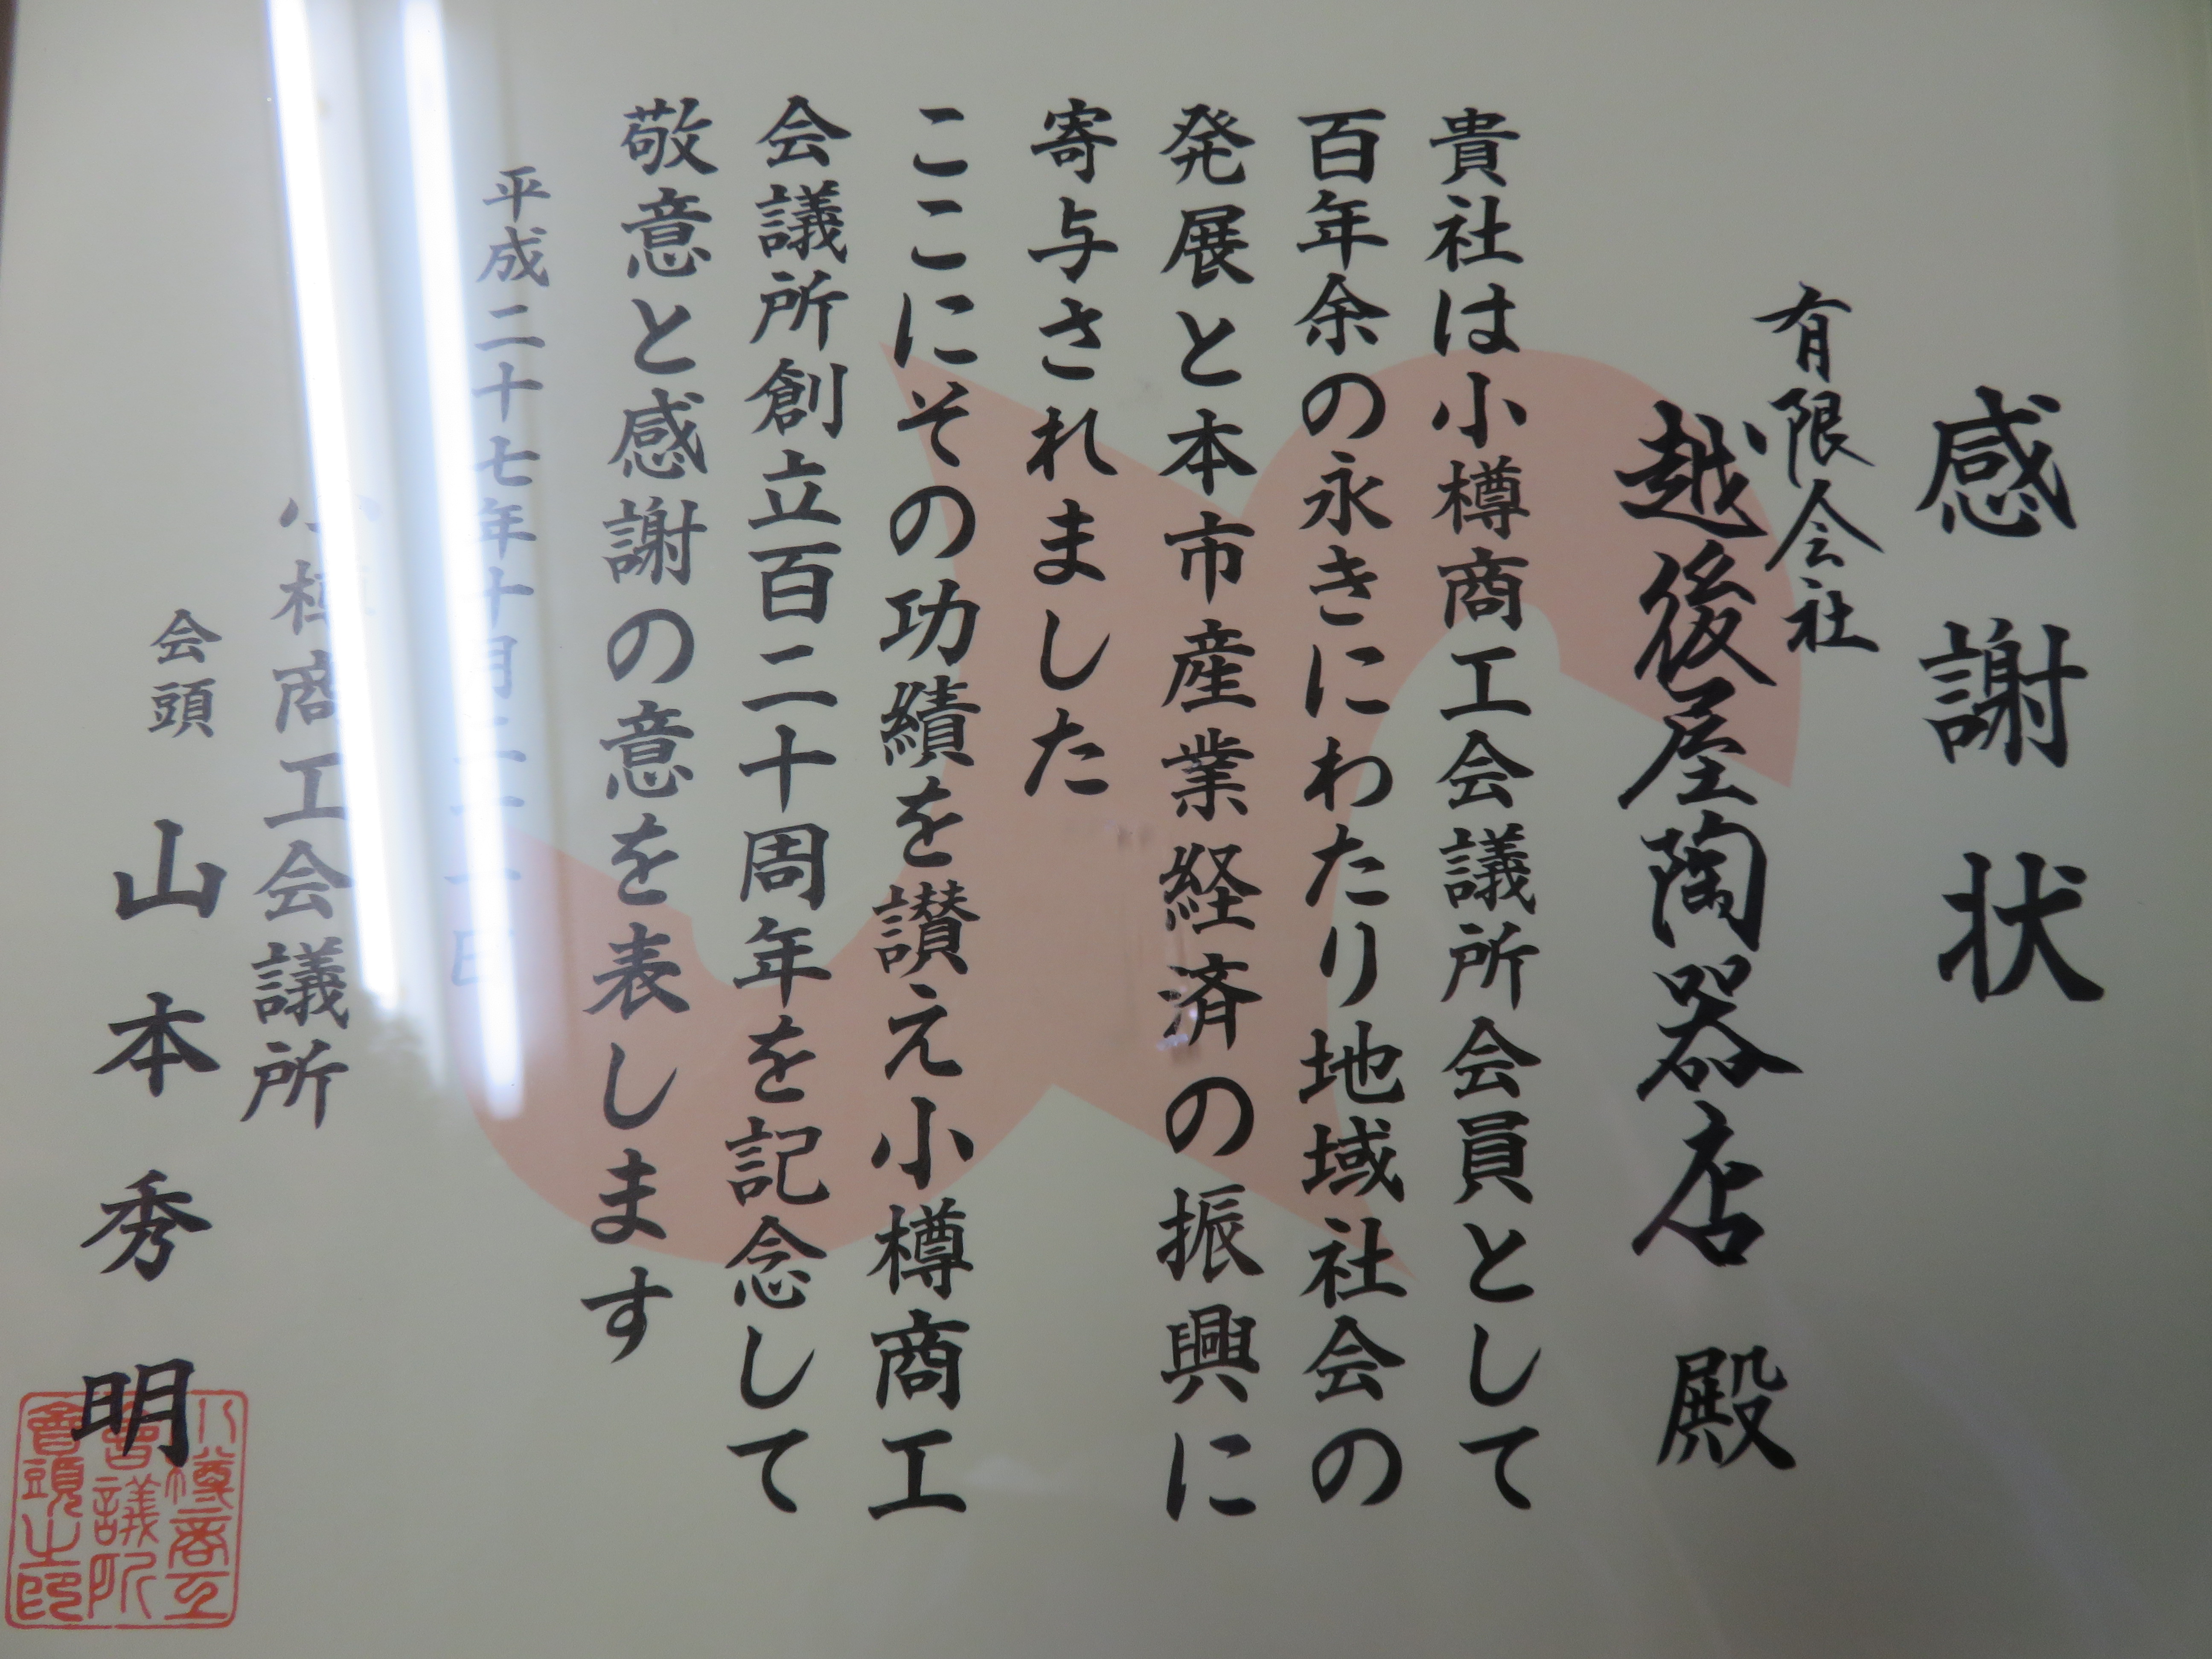 感謝状
有限会社
越後屋陶器店 殿
貴社は小樽商工会議所会員として
百年余の永きにわたり地域社会の
発展と本市産業経済の振興に
寄与されました
ここにその功績を讃え小樽商工
会議所創立百二十周年を記念して
敬意と感謝の意を表します
平成二十七年十月二十一日
小樽商工会議所
会頭 山本秀明
小樽商工
會議所
會頭之印